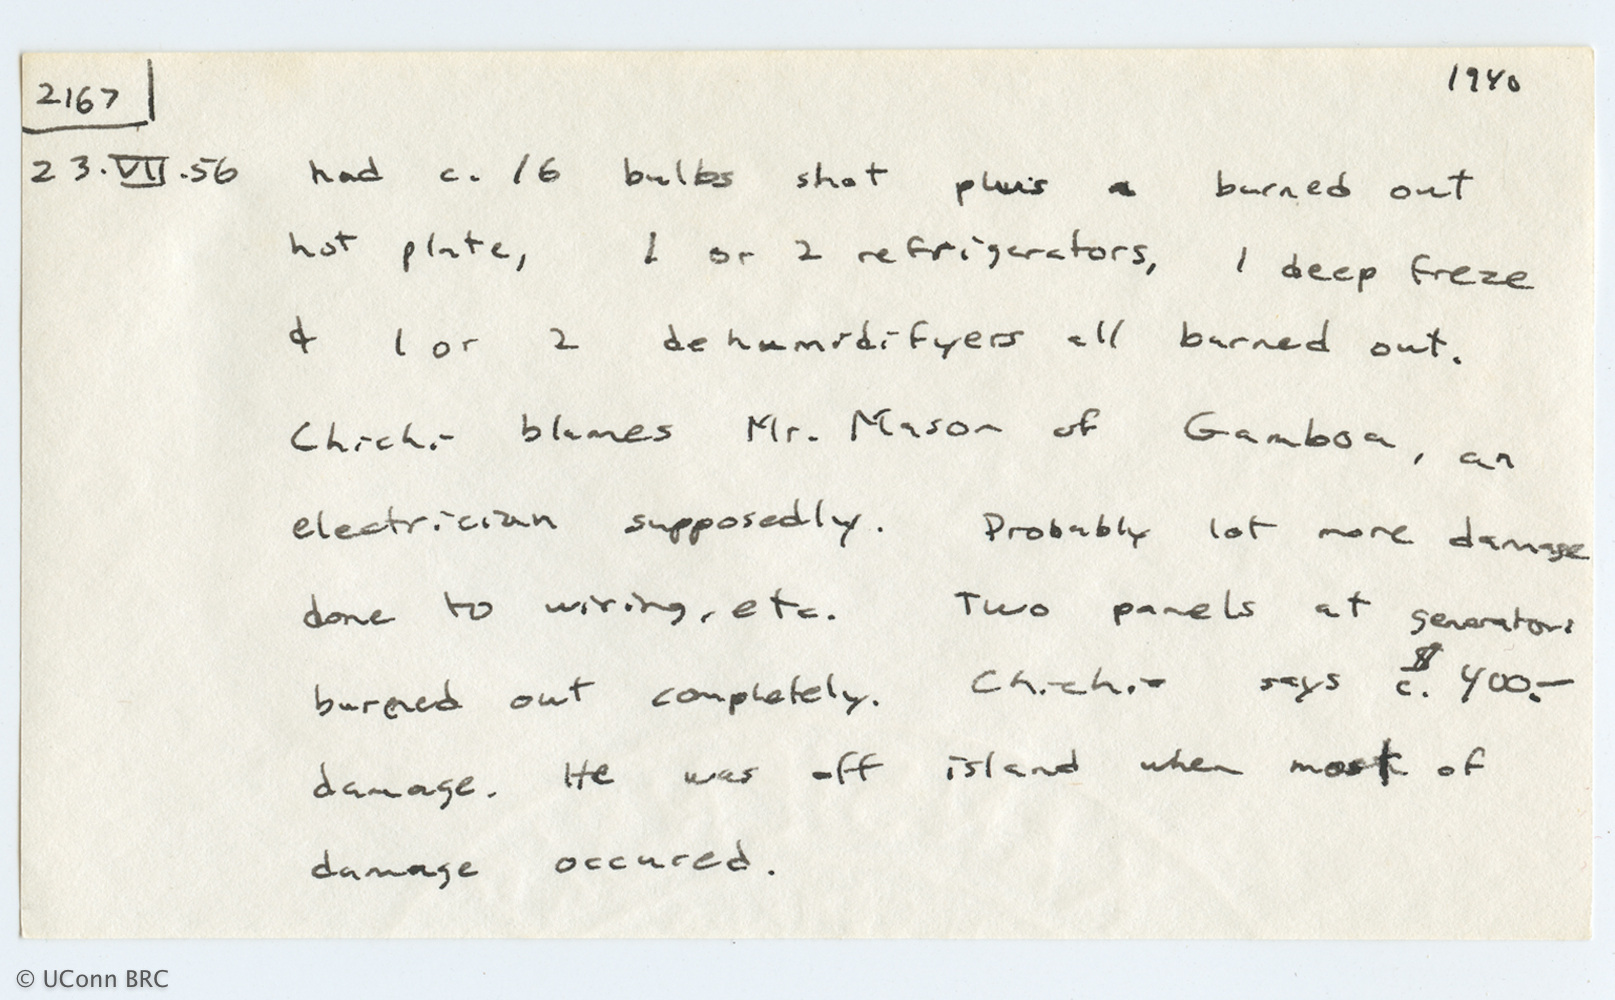 2167
1940
23.VII.56 had c. 16 bulbs shot plus a burned out
hot plate, 1 or 2 refrigerators, 1 deep freze
& 1 or 2 dehumidifyers all burned out.
Chichi blames Mr. Mason of Gamboa, an
electrician supposedly. Probably lot more damage
done to wiring, etc. Two panels at generators
burned out completely. Chichi says c. $400.–
damage. He was off island when most of
damage occured.
© UConn BRC